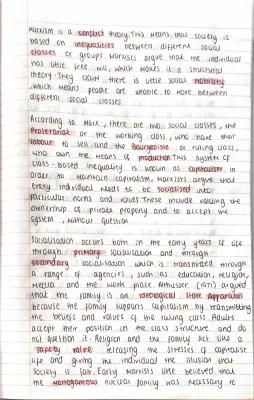 Marxism is a conflict theory. This means that society is
based on inequalities between different social
classes or groups. Marxists argue that the individual
has little free will, which makes it a structural
theory. They claim there is little social mobility
, which means people are unable to move between
different social classes
According to Marx, there are two social classes, the
Proletariat or the working class, who have their
labour to sell and the Bourgeoisie or ruling class,
who own the means of production. This system of
class-based inequality is known as capitalism. In
order to maintain capitalism, Marxists argue that
every individual needs to be socialised into
particular norms and values. These include valuing the
ownership of private property and to accept the
system, without question
Socialisation occurs both in the early years of life
through primary socialisation and through
secondary socialisation which is transmitted through
a range of agencies, such as education, religion,
media and the work place. Althusser (1971) argued
that the family is an Ideological State Apparatus
because the family supports capitalism by transmitting
the beliefs and values of the ruling class. Adults
accept their position in the class structure and do
not question it. Religion and the family act like a
safety valve releasing the stresses of capitalist
life and giving the individual the illusion that
society is fair. Early Marxists believed that
the monogamous nuclear family was necessary to